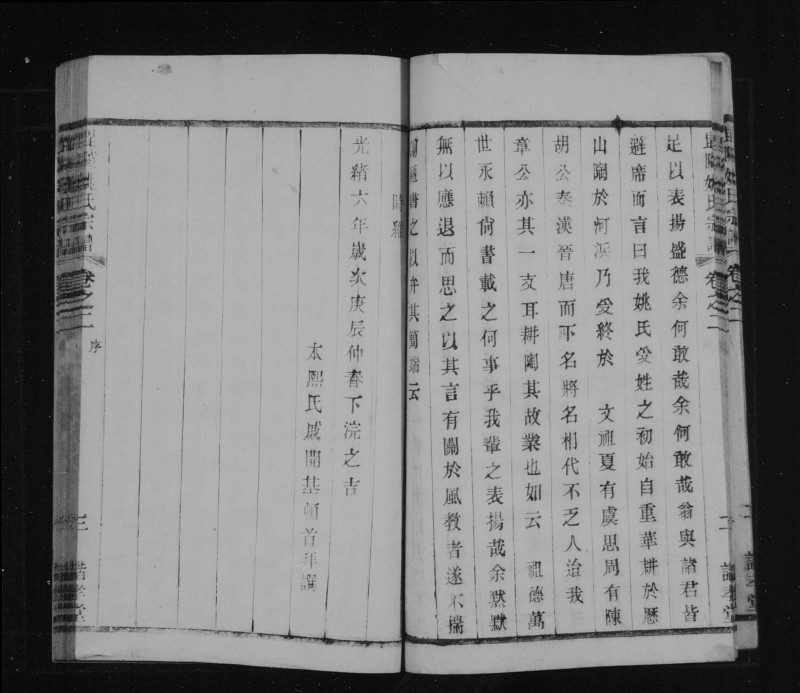 足以表揚盛德余何敢哉余何敢哉翁與諸君皆
避席而言曰我姚氏受姓之初始自重華耕於歷
山陶於河濱乃受終於　文祖夏有虞思周有陳
胡公秦漢晉唐而下名將名相代不乏人治我
章公亦其一支耳耕陶其故業也如云　祖德萬
世永賴尙書載之何事乎我輩之表揚哉余默默
無以應退而思之以其言有關於風教者遂不揣
之以弁其簡端云
時維
光緒六年歲次庚辰仲春下浣之吉
本熙氏戚開基頓首拜撰
姚氏宗譜
卷之二
序
三
諧孝堂
姚氏宗譜
卷之二
二
諧孝堂